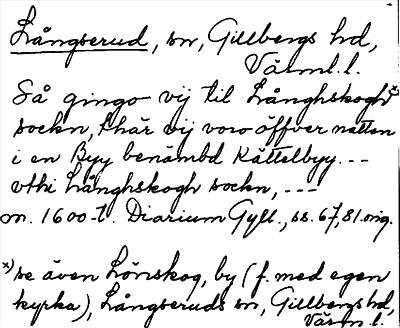 Långserud, sn, Gillbergs hd,
Värml.l.
Så gingo vij til Långhskoghx)
sockn, thär vij voro öffver natten
i en Byy benämbd Kättelbyy. --
vthi Långhskogh sockn, ---
m. 1600-t. Diarium Gyll., ss. 67, 81 orig.
x) se även Lönskog, by (f. med egen
kyrka), Långseruds sn, Gillbergs hd,
Värml.l.